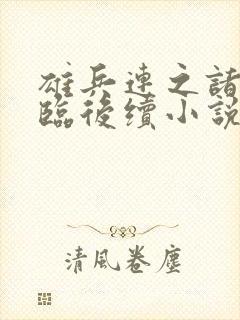 雄兵連之諸
臨後續小說
清風卷塵